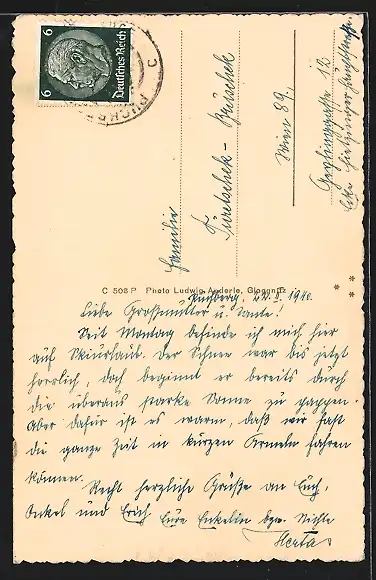 6
6
Deutsches Reich
PUCHBE
Familie
Türetschek-
Wien 89.
12
C 508 P Photo Ludwig Anderle, Gloggnitz
Puchberg, 22. II. 1940.
Liebe Großmutter u. Tante!
Seit Montag befinde ich mich hier
auf Skiurlaub. Der Schnee war bis jetzt
herrlich, doch beginnt er bereits durch
die überaus starke Sonne zu pappen.
Aber dafür ist es warm, daß wir fast
die ganze Zeit in kurzen Ärmeln fahren
können.
Recht herzliche Grüße an Euch,
Onkel und Erich Eure Enkelin bzw. Nichte
Herta